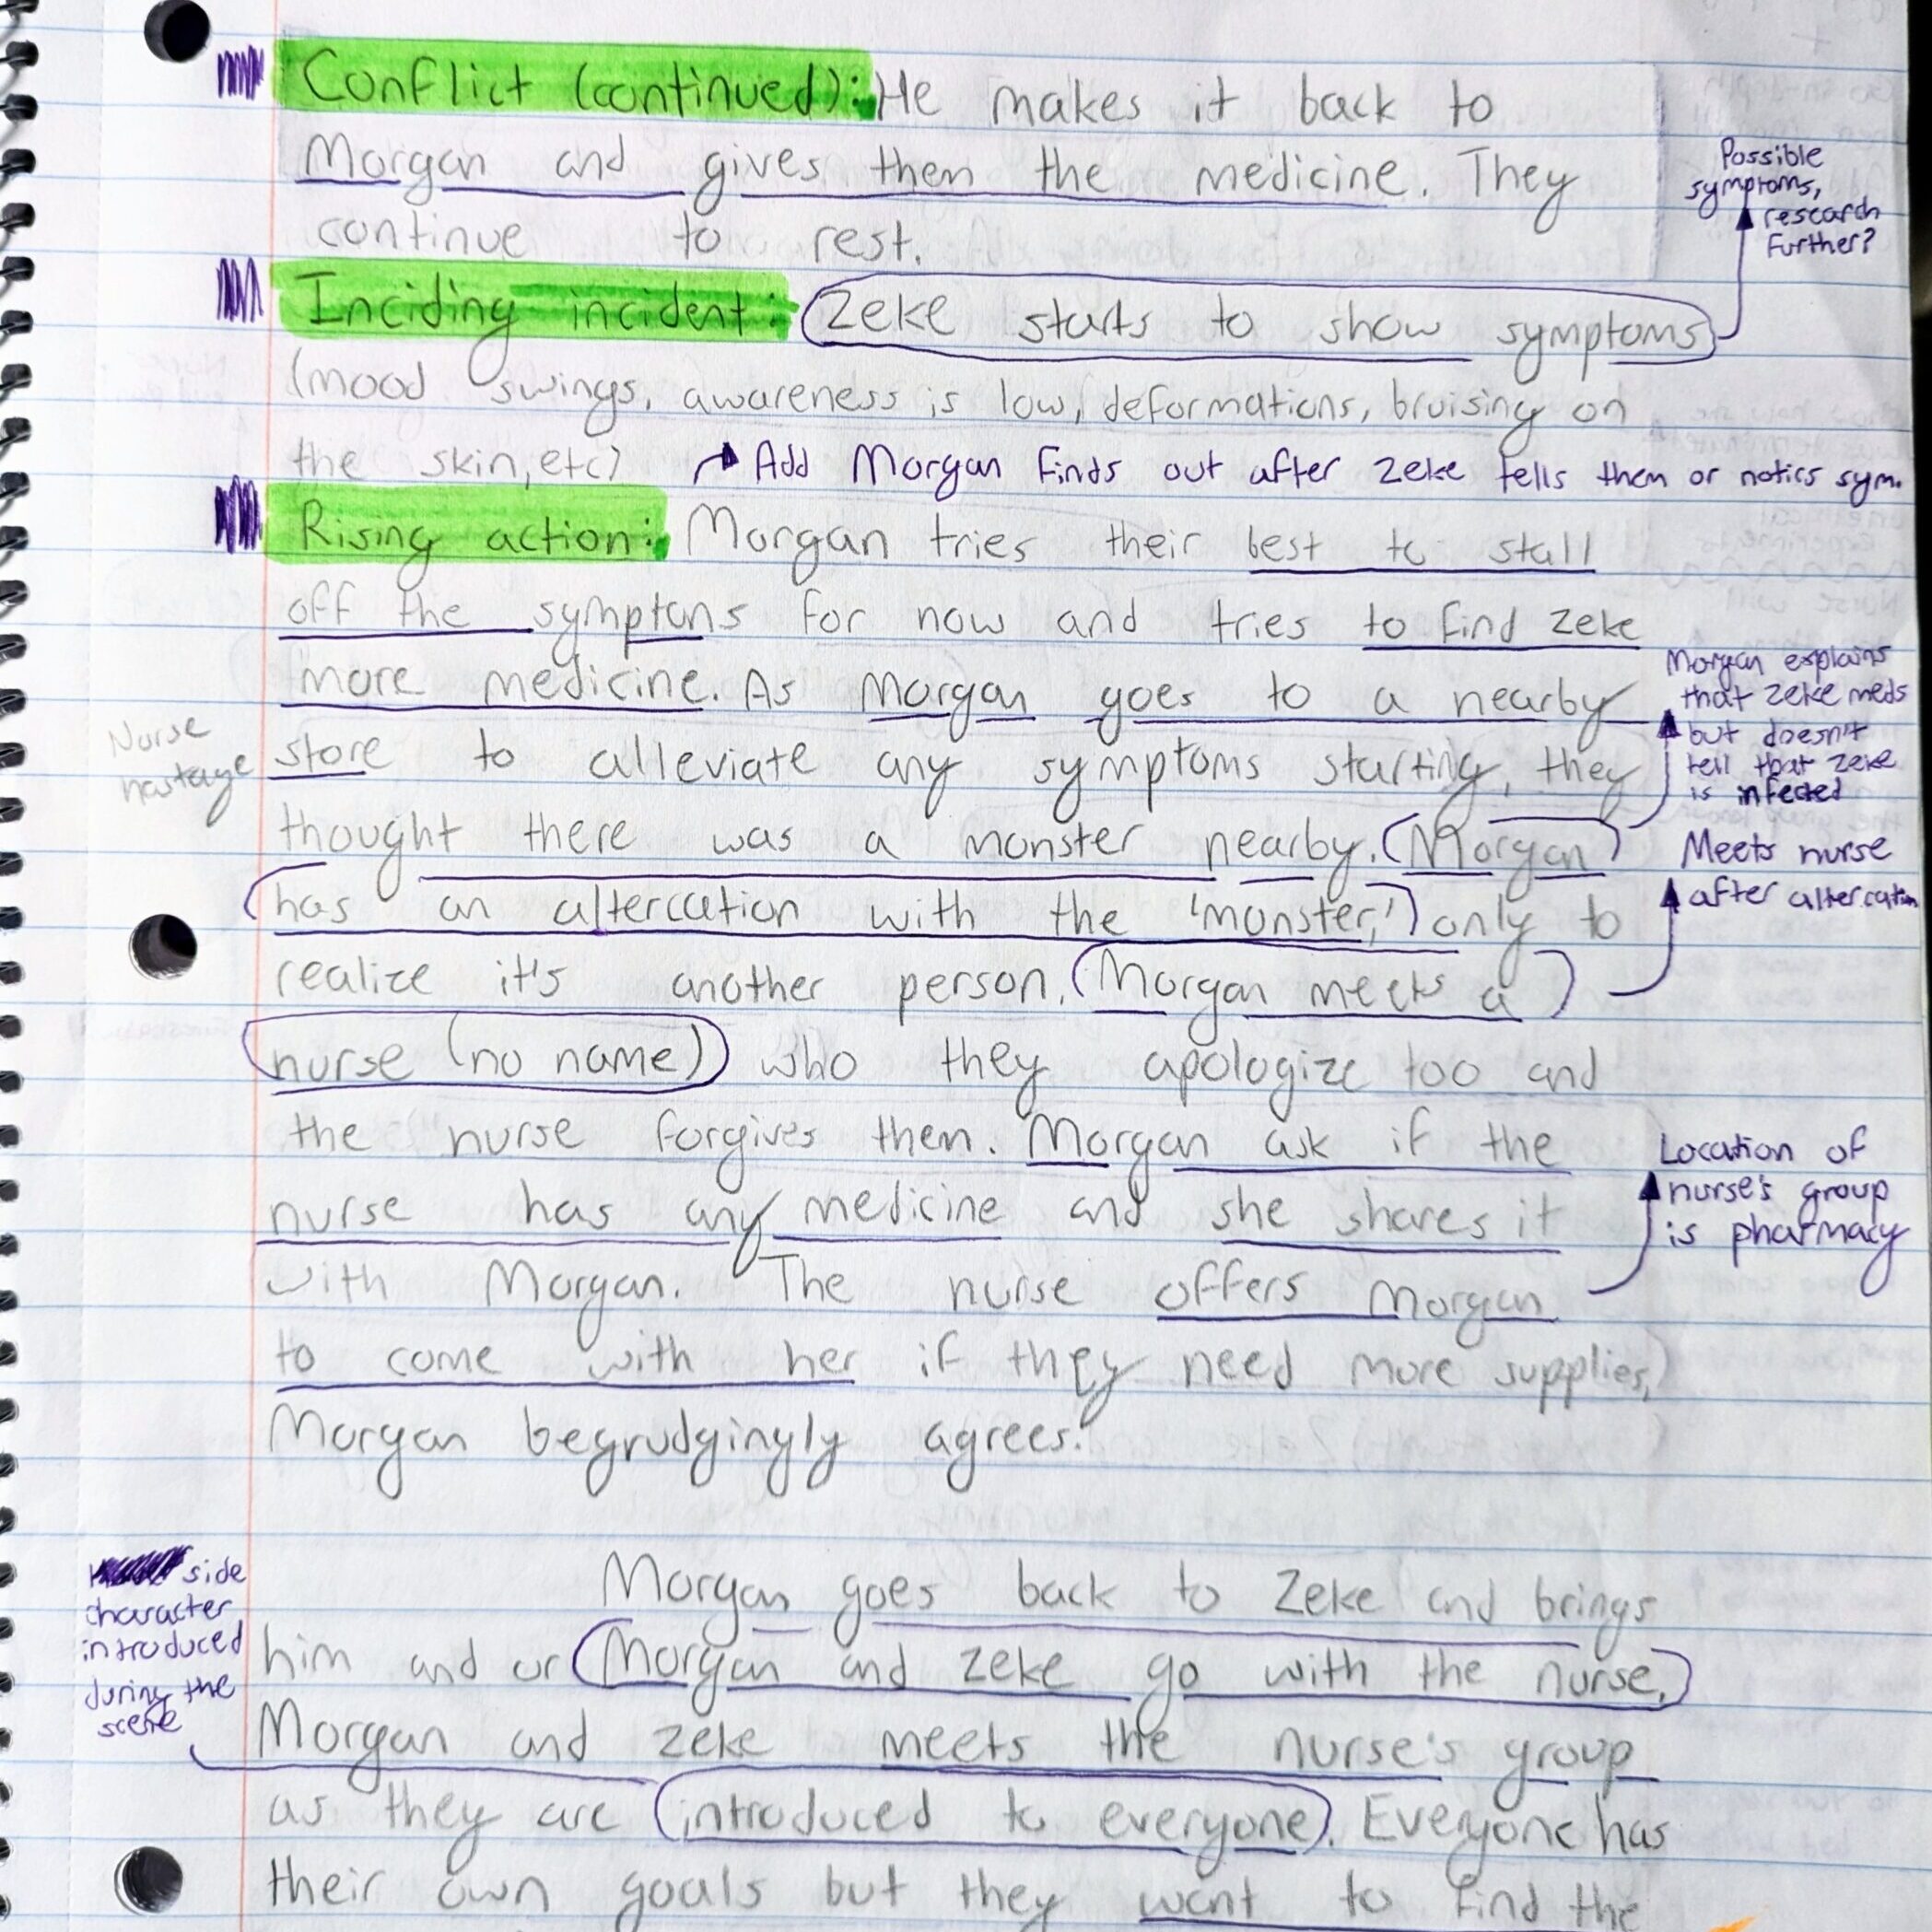 Conflict (continued): He makes it back to
Morgan and gives them the medicine. They
continue to rest.
Possible
symptoms,
research
further?
Inciding incident: Zeke starts to show symptoms
(mood swings, awareness is low, deformations, bruising on
the skin, etc)
Add Morgan finds out after Zeke tells them or notics sym.
Rising action: Morgan tries their best to stall
off the symptoms for now and tries to find Zeke
more medicine. As Morgan goes to a nearby
store to alleviate any symptoms starting, they
thought there was a monster nearby. (Morgan)
Nurse
hostage
Morgan explains
that Zeke meds
but doesn't
tell that Zeke
is infected
(has an altercation with the 'monster,') only to
realize it's another person. (Morgan meets a)
Meets nurse
after altercation
nurse (no name) who they apologize too and
the nurse forgives them. Morgan ask if the
nurse has any medicine and she shares it
with Morgan. The nurse offers Morgan
Location of
nurse's group
is pharmacy
to come with her if they need more supplies,
Morgan begrudgingly agrees.
Morgan goes back to Zeke and brings
him and or (Morgan and Zeke go with the nurse.)
side
character
introduced
during the
scene
Morgan and Zeke meets the nurse's group
as they are (introduced to everyone). Everyone has
their own goals but they want to find the